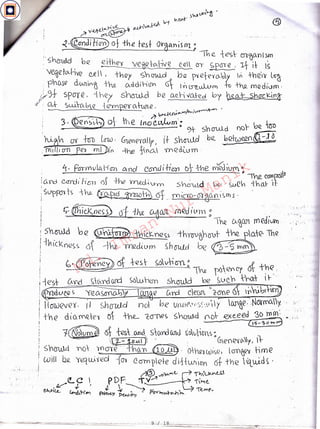 vegetative → activated by heat shocking.
(9)
2. (Condition) of the test Organism :
The test organism
should be either vegetative cell or spore. If it is
vegetative cell, they should be preferably in their log
phase during the addition of inoculum to the medium.
If spore, they should be activated by heat shocking
at suitable temperature.
3. (Density) of the Inoculum :
It should not be too
high or too low. Generally, it should be between 1-10
million per ml in the final medium
4. Formulation and condition of the medium :
The composition
and condition of the medium should be such that it
supports the rapid growth of micro-organisms.
5. (Thickness) of the agar medium :
The agar medium
should be uniform thickness throughout the plate. The
thickness of the medium should be 3-5 mm.
6. (Potency) of test solution :
The potency of the
test and standard solution should be such that it
produces reasonably large and clear "zone of inhibition"
However, it should not be unnecessarily large. Normally
the diameter of the zones should not exceed 30 mm.
7. (Volume) of test and standard solutions :
Generally, it
should not more than 10 ml. Otherwise, longer time
will be required for complete diffusion of the liquids.
C C ! PDF T.V → volume → Thickness
Time
Temp.
choice condition Potency Density Formulation
9 / 18